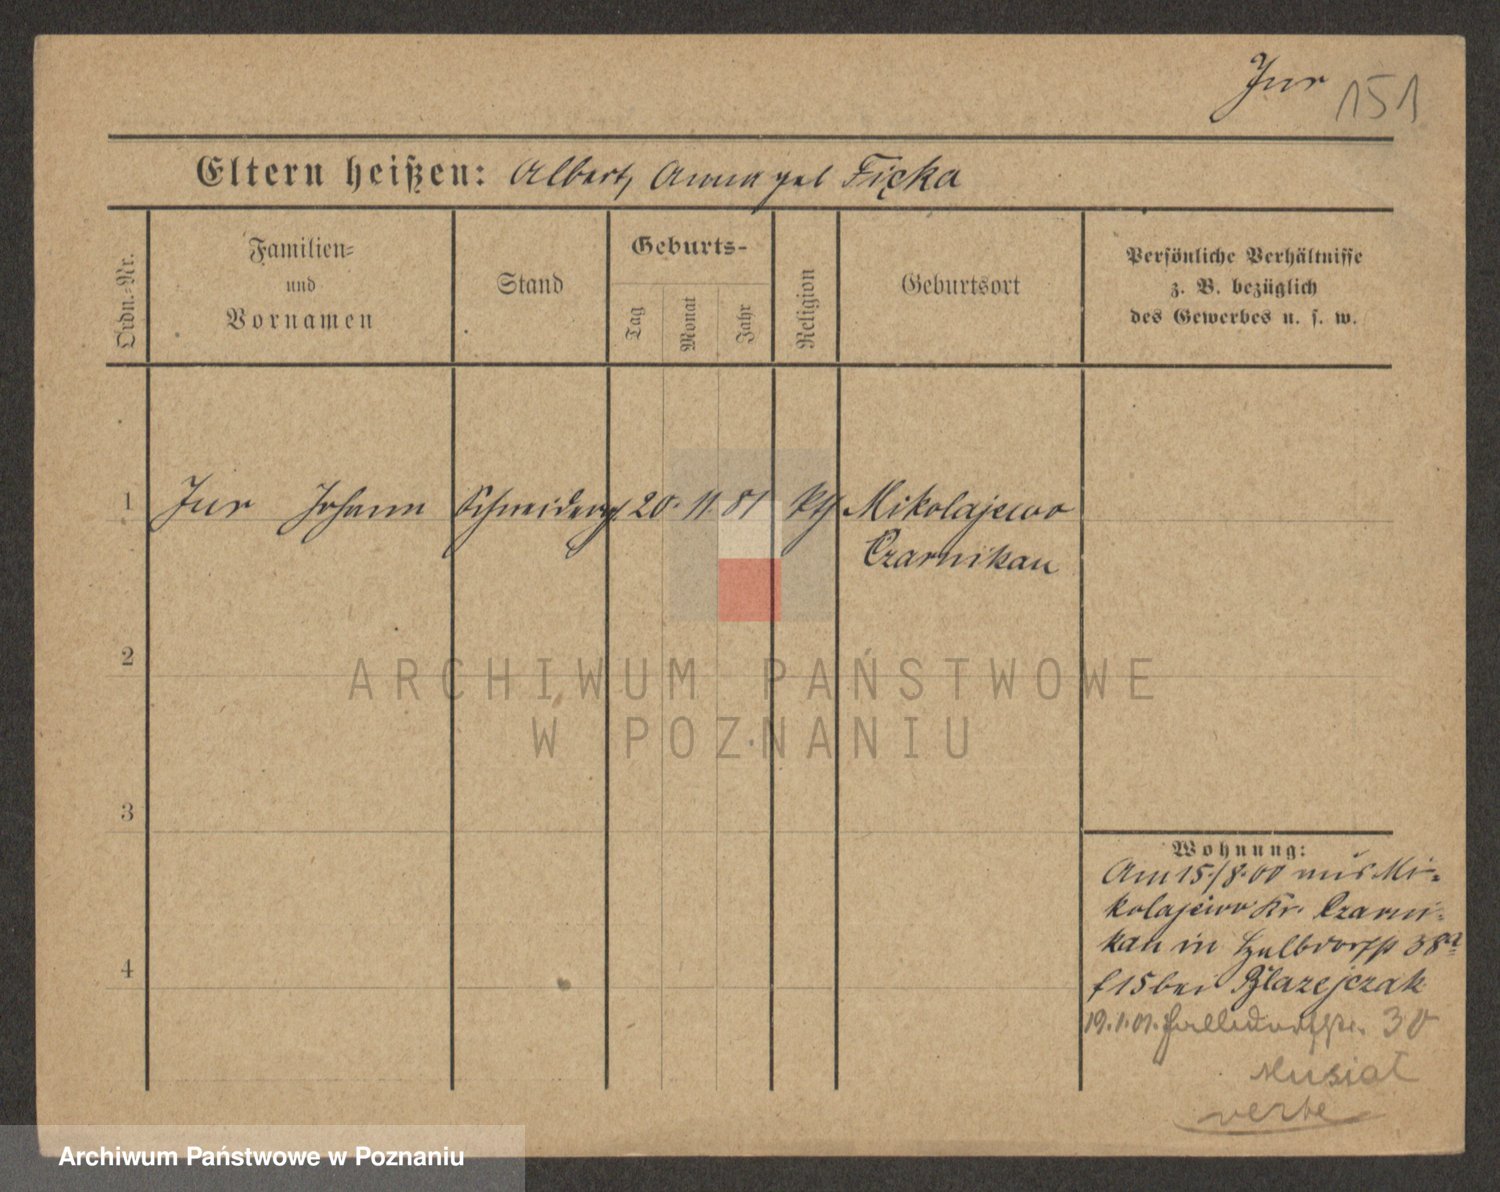 Jur 151
Eltern heißen: Albert, Anna geb Ficka
Ordn.-Nr.
Familien-
und
Vornamen
Stand
Geburts-
Tag
Monat
Jahr
Religion
Geburtsort
Persönliche Verhältnisse
z. B. bezüglich
des Gewerbes u. s. w.
1 Jur Johann Schneiderges. 20. 11. 81 kth Mikolajewo
Czarnikau
2
3
4
Wohnung:
Am 15./8.00 aus Mi-
kolajewo Kr. Czarni-
kau in 38a
bei Blazejczak
19.1.01. 30
Musial
ARCHIWUM PAŃSTWOWE
W POZNANIU
Archiwum Państwowe w Poznaniu